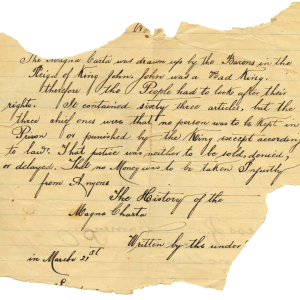 The Magna Carta was drawn up by the Barons in the
Reign of King John. John was a Bad King.
therefore the People had to look after their
rights. It contained sixty three articles, but the
three chief ones were that no person was to be kept in
Prison or punished by the King except according
to law. That justice was neither to be sold, denied,
or delayed. That no Money was to be taken
from Anyone
The History of the
Magna Charta
Written by the under
in March 21st